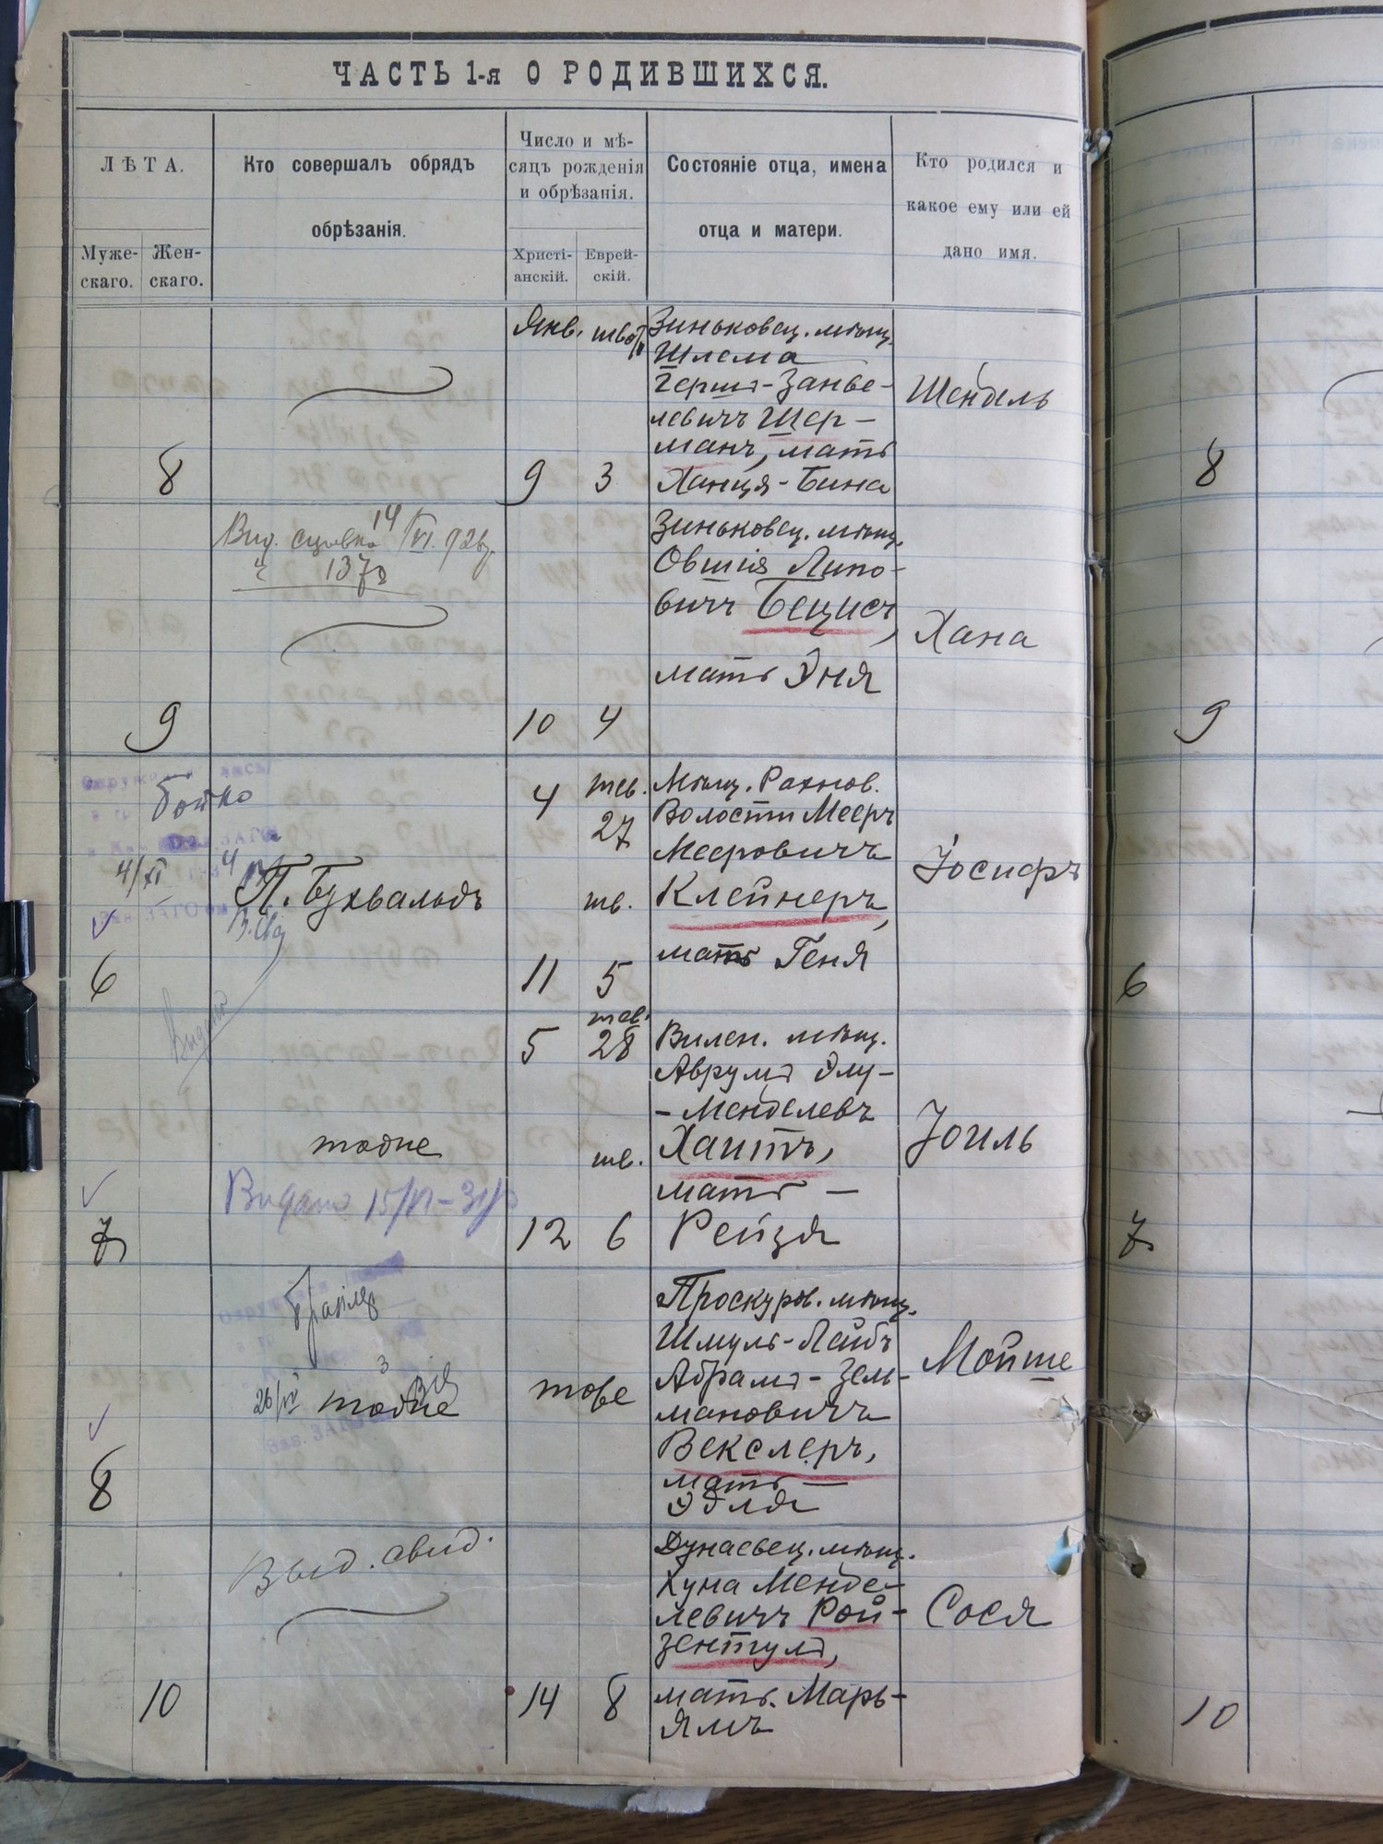 ЧАСТЬ 1-я О РОДИВШИХСЯ.
ЛѢТА.
Муже-
скаго.
Жен-
скаго.
Кто совершалъ обрядъ
обрѣзанія.
Число и мѣ-
сяцъ рожденія
и обрѣзанія.
Христі-
анскій.
Еврей-
скій.
Состояніе отца, имена
отца и матери.
Кто родился и
какое ему или ей
дано имя.
Янв.
Зиньковец. мѣщ.
Шлема
Гершъ-Занве-
левичъ Шер-
манъ, мать
Ханця-Бина
Шендель
8
9 3
8
14/VI.
137
Зиньковец. мѣщ.
Овшія Липо-
вичъ Бецисъ,
мать Эня
Хана
9
10 4
9
4 тев.
27
Мѣщ. Рахнов.
Волости Мееръ
Мееровичъ
Клейнеръ,
мать Геня
Іосифъ
4/XI
П. Бухвальдъ
шв.
6
11 5
6
5 тев.
28
Вилен. мѣщ.
Аврумъ Элу-
-Менделевъ
Хаитъ,
мать —
Рейзя
Іоиль
тоже
шв.
Видано 15/VI-31р
7
12 6
7
Проскуров. мѣщ.
Шмуль-Лейбъ
Абрамъ-Зель-
мановичъ
Векслеръ,
мать —
Эдля
Мойше
26/VI
тоже
тоже
8
Выд. свид.
Дунаевец. мѣщ.
Хуна Менде-
левичъ Рой-
зентулъ,
мать Марь-
ямъ
Сося
10
14 8
10